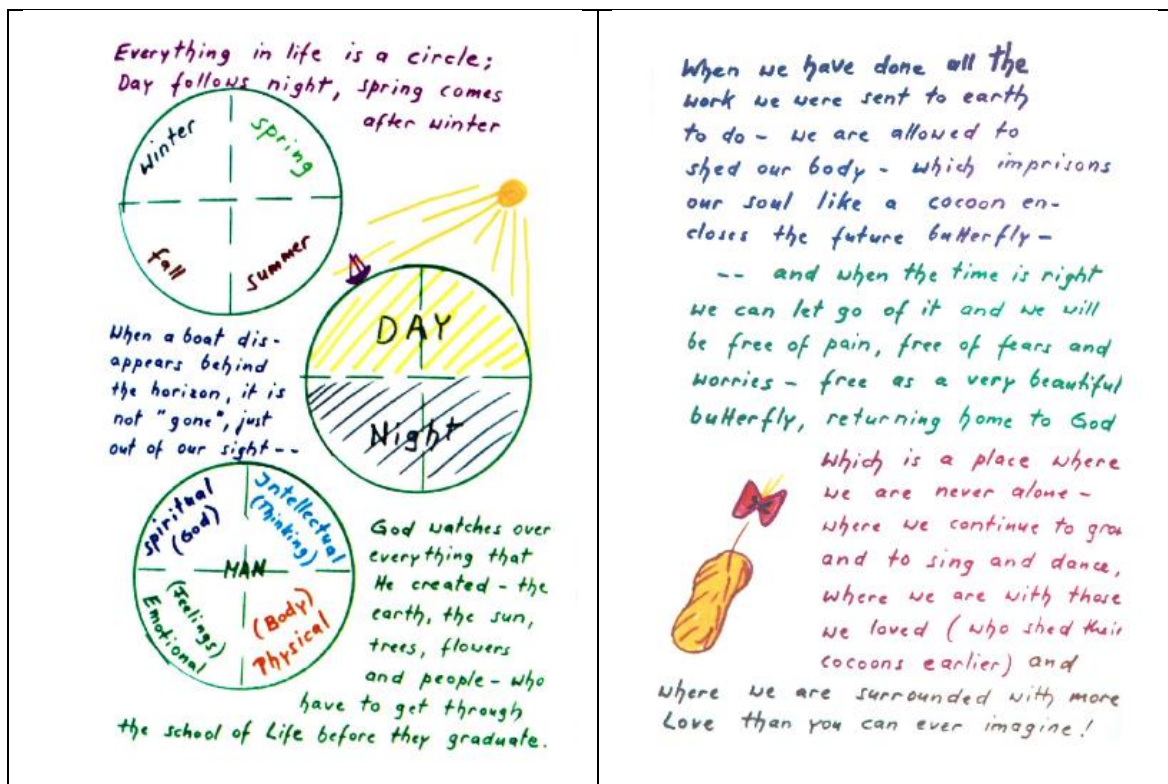 Everything in life is a circle;
Day follows night, spring comes
after winter
winter
spring
fall
summer
DAY
Night
When a boat dis-
appears behind
the horizon, it is
not "gone", just
out of our sight --
spiritual
(God)
Intellectual
(Thinking)
MAN
(Feelings)
Emotional
(Body)
Physical
God watches over
everything that
He created - the
earth, the sun,
trees, flowers
and people - who
have to get through
the school of Life before they graduate.
When we have done all the
work we were sent to earth
to do - we are allowed to
shed our body - which imprisons
our soul like a cocoon en-
closes the future butterfly -
-- and when the time is right
we can let go of it and we will
be free of pain, free of fears and
worries - free as a very beautiful
butterfly, returning home to God
which is a place where
we are never alone -
where we continue to grow
and to sing and dance,
where we are with those
we loved (who shed their
cocoons earlier) and
where we are surrounded with more
Love than you can ever imagine!